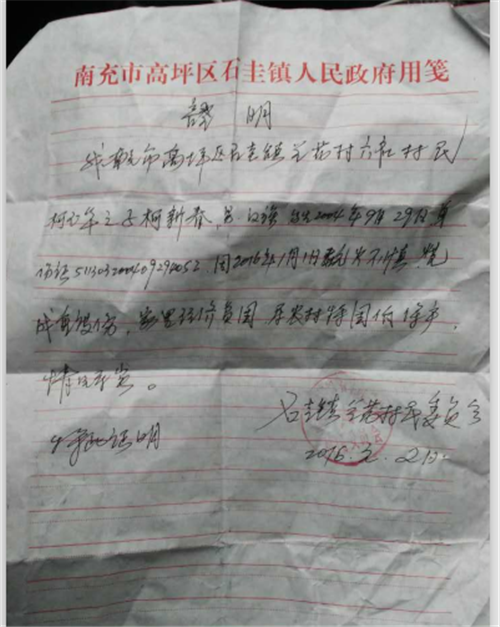 南充市高坪区石圭镇人民政府用笺
证 明
我南充市高坪区石圭镇兰花村六社村民
柯 年之子柯新春,男 汉族 出生2004年9月29日,身
份证511303200409294052.因2016年1月1日 火不慎,烧
成重度伤,家里经济负困,系农村特困低保户,
情况属实。
特此证明
石圭镇兰花村民委员会
2016.元.2日